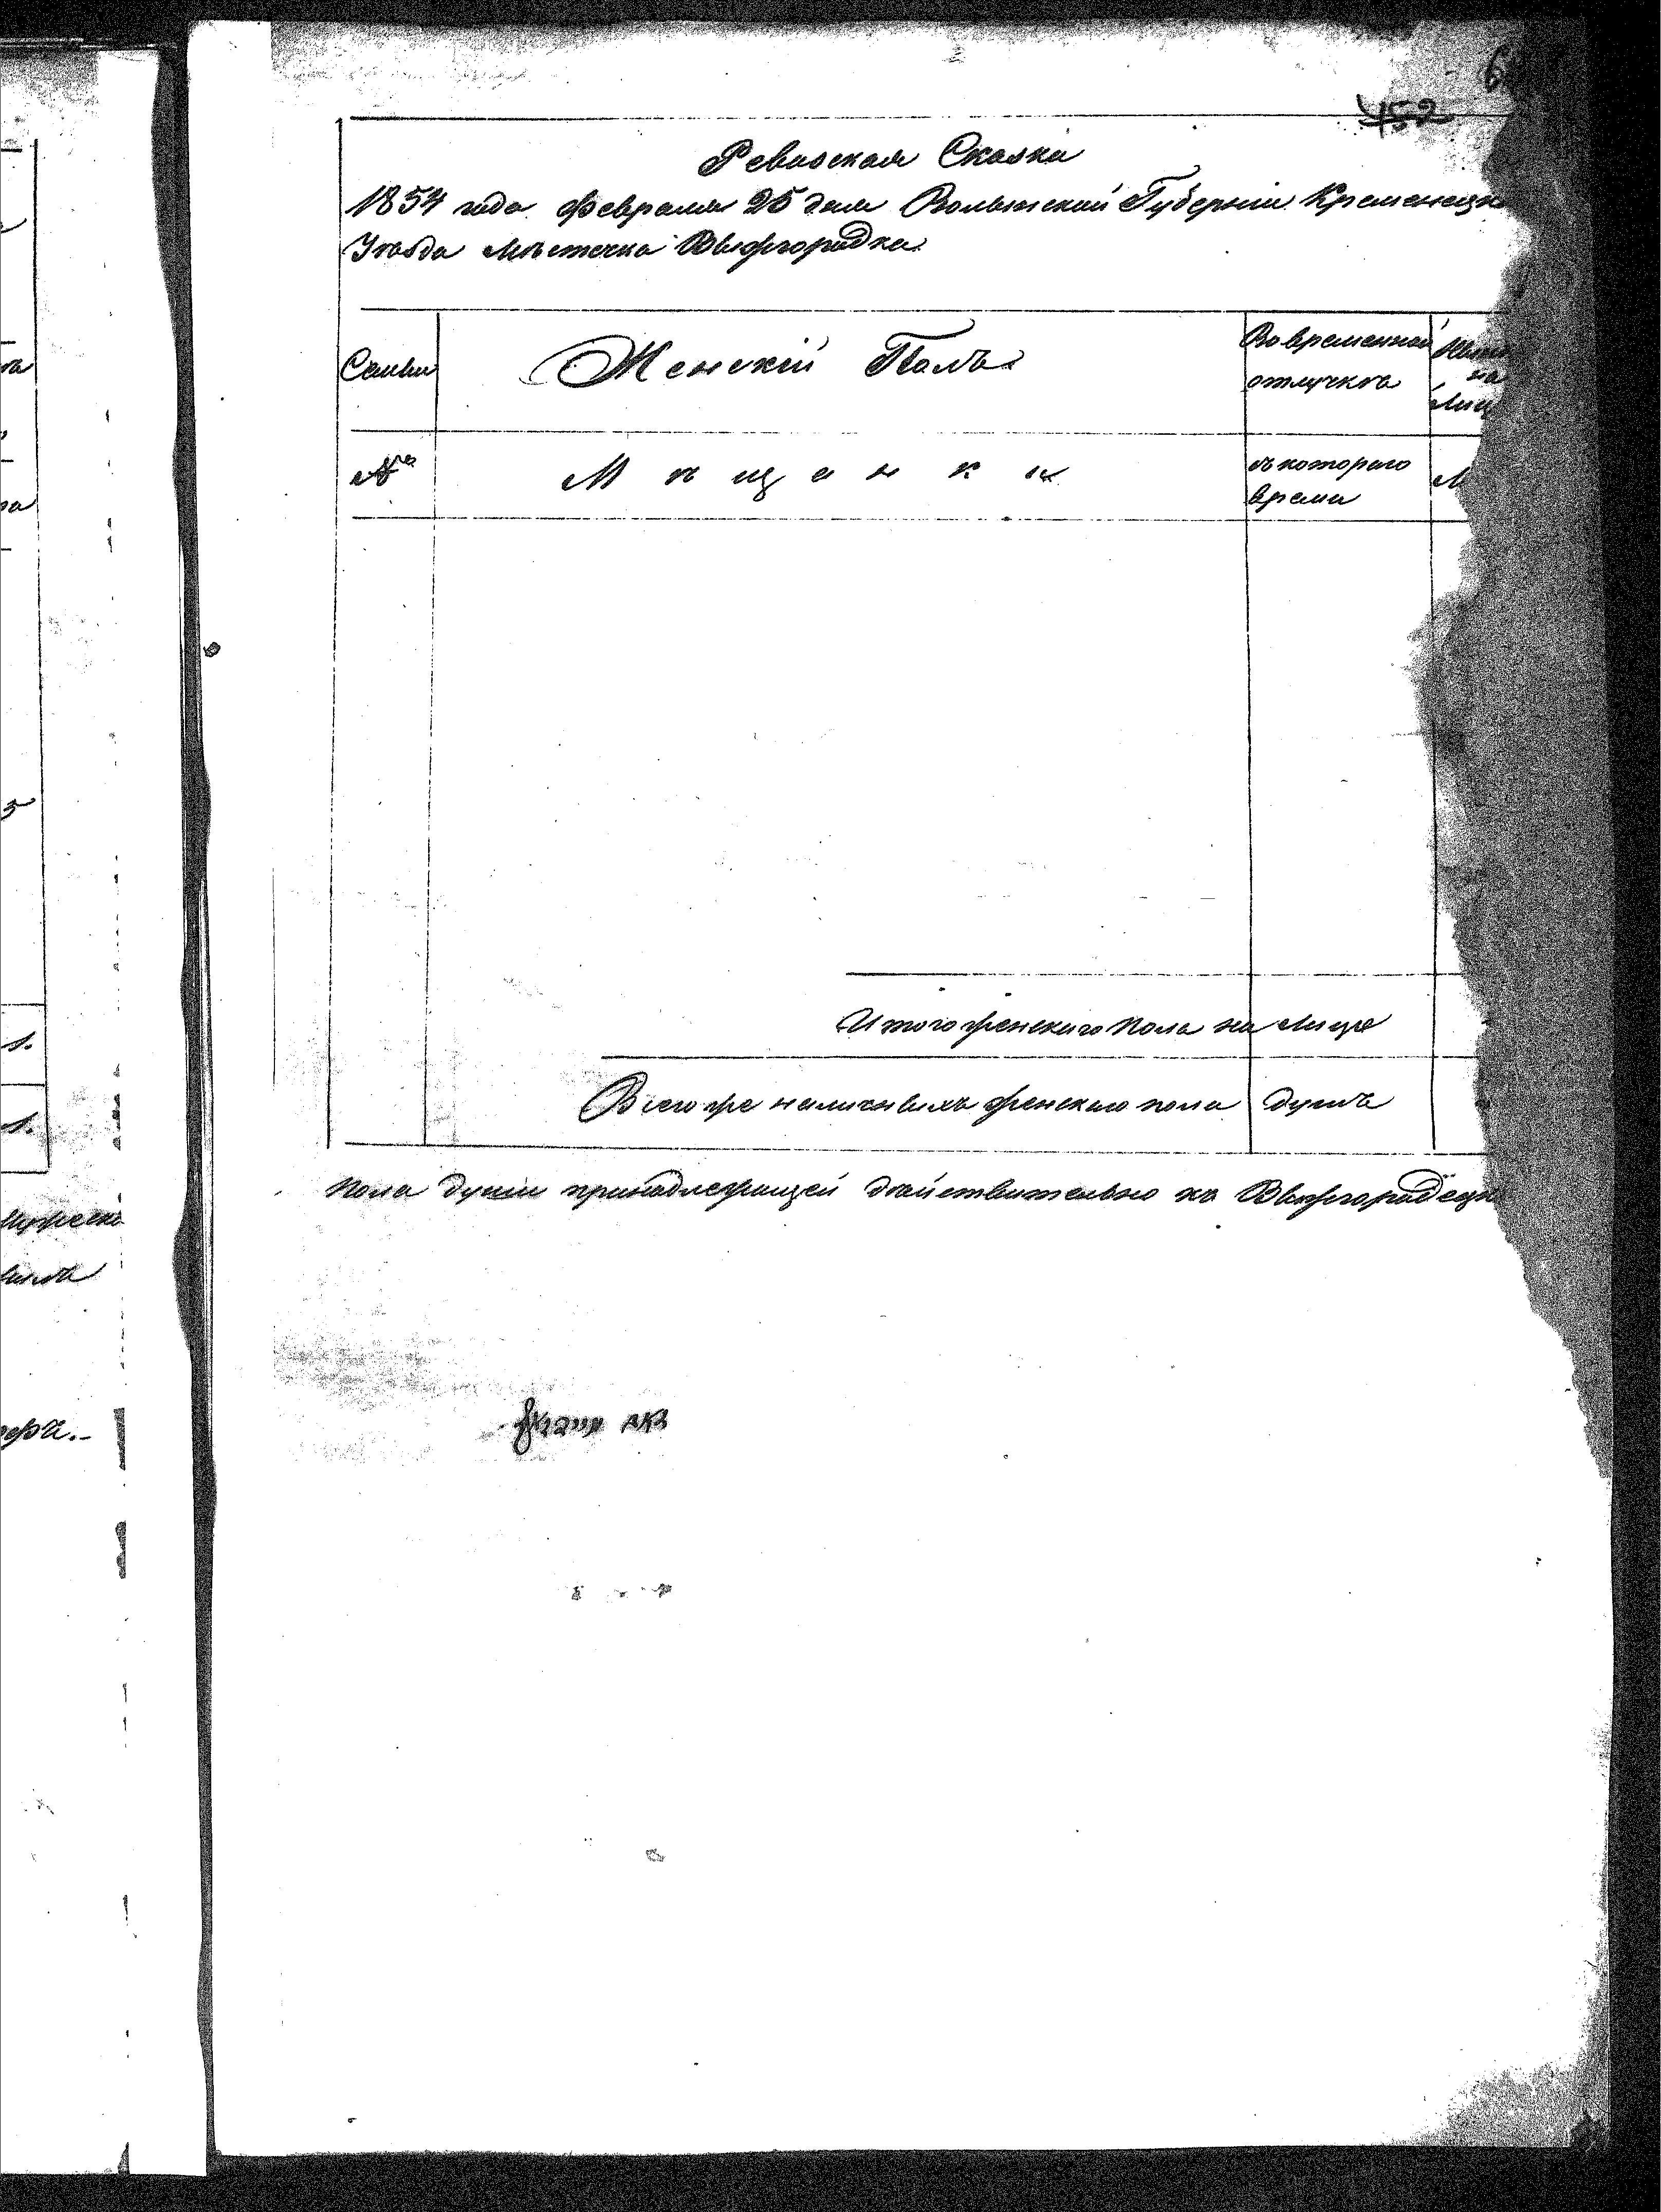 452
Ревизская Сказка
1854 года февраля 25 дня Волынской Губерніи Кременецк
Уѣзда Мѣстечка Вышгородка
Семьи
Женскій Полъ
Во временной
отлучкѣ
на
Лиц
№
Мѣщанки
съ котораго
время
Итого женскаго пола на лице
Всего же наличныхъ женскаго пола душъ
пола души принадлежащей дѣйствительно къ Вышгородецк